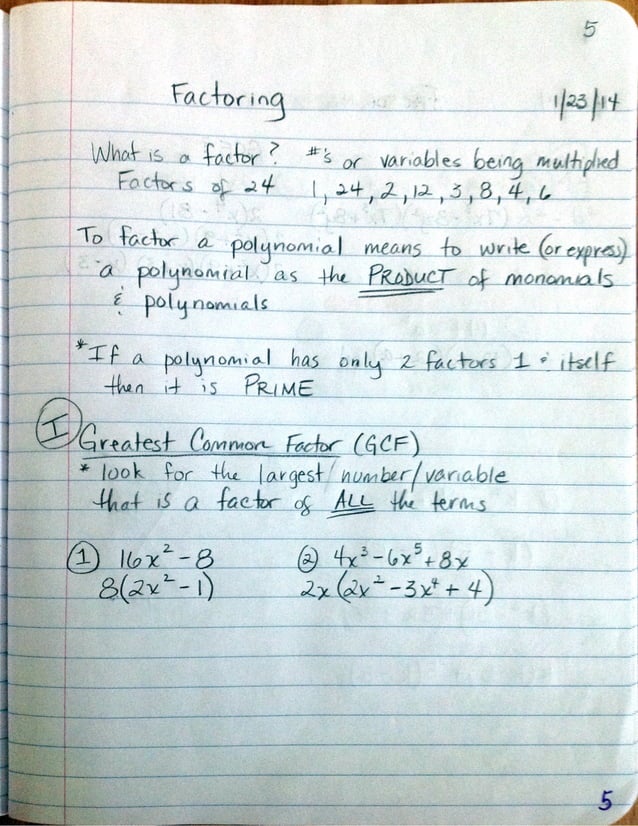 5
Factoring 1/23/14
What is a factor? #'s or variables being multiplied
Factors of 24 1, 24, 2, 12, 3, 8, 4, 6
To factor a polynomial means to write (or express)
a polynomial as the PRODUCT of monomials
& polynomials
*If a polynomial has only 2 factors 1 & itself
then it is PRIME
I Greatest Common Factor (GCF)
* look for the largest number/variable
that is a factor of ALL the terms
① 16x² - 8 ② 4x³ - 6x⁵ + 8x
8(2x² - 1) 2x(2x² - 3x⁴ + 4)
5